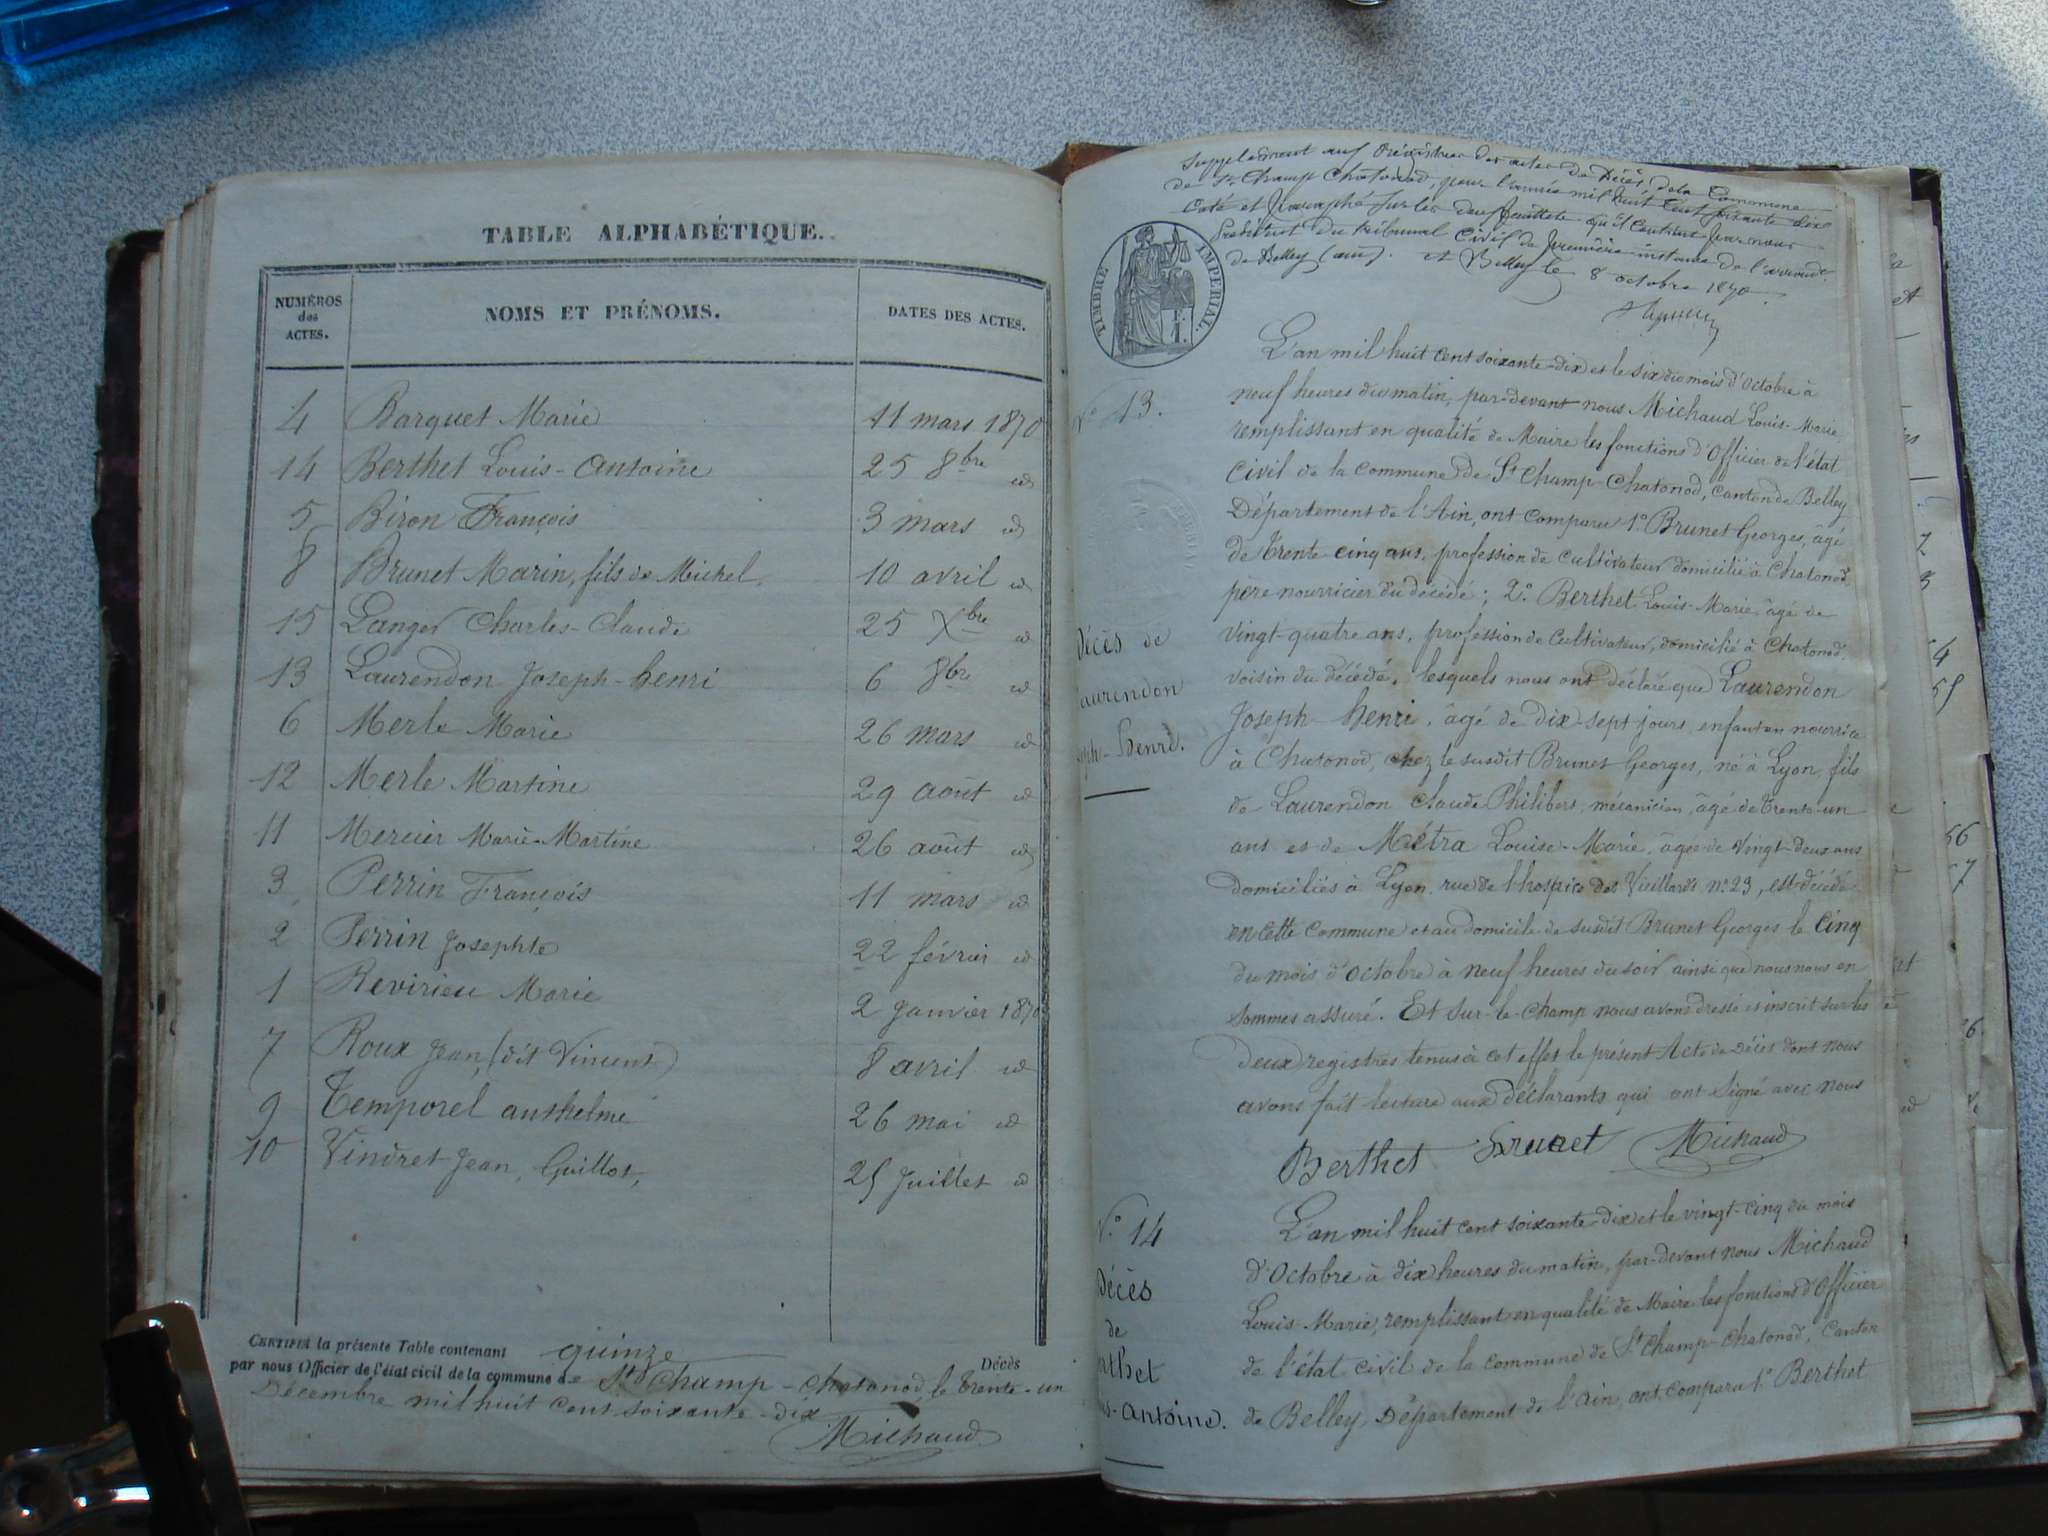 TABLE ALPHABÉTIQUE.
NUMÉROS des ACTES. NOMS ET PRÉNOMS. DATES DES ACTES.
4 Barquet Marie 11 mars 1870
14 Berthet Louis-Antoine 25 8bre id
5 Biron François 3 mars id
8 Brunet Marin, fils de Michel 10 avril id
15 Langer Charles-Claude 25 Xbre id
13 Laurendon Joseph-henri 6 8bre id
6 Merle Marie 26 mars id
12 Merle Martine 29 août id
11 Mercier Marie-Martine 26 août id
3 Perrin François 11 mars id
2 Perrin Josephte 22 février id
1 Revirieu Marie 2 Janvier 1870
7 Roux Jean, (dit Vincent) 8 avril id
9 Temporel anthelme 26 mai id
10 Vindret Jean, Guillot, 25 Juillet id
CERTIFIÉ la présente Table contenant quinze Décès
par nous Officier de l'état civil de la commune de St Champ-Chatonod le trente-un
Décembre mil huit cent soixante-dix
Michaud
Supplément aux Régistres des actes de Décès de la Commune
de St Champ Chatonod, pour l'année mil huit cent soixante dix
Coté et paraphé sur les deux feuillets qu'il contient par nous
Président du tribunal Civil de première instance de l'arrondt
de Belley (ain). à Belley le 8 octobre 1870.
TIMBRE IMPÉRIAL.
1 F.
L'an mil huit cent soixante-dix et le six du mois d'Octobre à
No 13. neuf heures du matin, par-devant nous Michaud Louis-Marie,
remplissant en qualité de Maire les fonctions d'Officier de l'état
Civil de la commune de St Champ-Chatonod, canton de Belley
Département de l'Ain, ont comparu 1o Brunet Georges, âgé
de trente cinq ans, profession de cultivateur domicilié à Chatonod,
père nourricier du décédé; 2o Berthet Louis-Marie âgé de
Décès de vingt-quatre ans, profession de cultivateur, domicilié à Chatonod,
voisin du décédé, lesquels nous ont déclaré que Laurendon
aurendon Joseph-henri, âgé de dix-sept jours, enfant en nourrice
eph-Henri. à Chatonod, chez le susdit Brunet Georges, né à Lyon, fils
de Laurendon Claude Philibert, mécanicien, âgé de trente-un
ans et de Métra Louise-Marie, âgée de vingt-deux ans
domiciliés à Lyon, rue de l'hospice des Vieillards no 23, est décédé
en cette commune et au domicile de susdit Brunet Georges le cinq
du mois d'Octobre à neuf heures du soir ainsi que nous nous en
sommes assuré. Et sur-le-champ nous avons dressé et inscrit sur les
deux registres tenus à cet effet le présent Acte de Décès dont nous
avons fait lecture aux déclarants qui ont signé avec nous
Berthet Brunet Michaud
L'an mil huit cent soixante-dix et le vingt-cinq du mois
No 14 d'Octobre à dix heures du matin, par-devant nous Michaud
Décès Louis-Marie, remplissant en qualité de Maire les fonctions d'Officier
de de l'état civil de la commune de St Champ-Chatonod, canton
rthet de Belley Département de l'Ain, ont comparu 1o Berthet
is-Antoine.